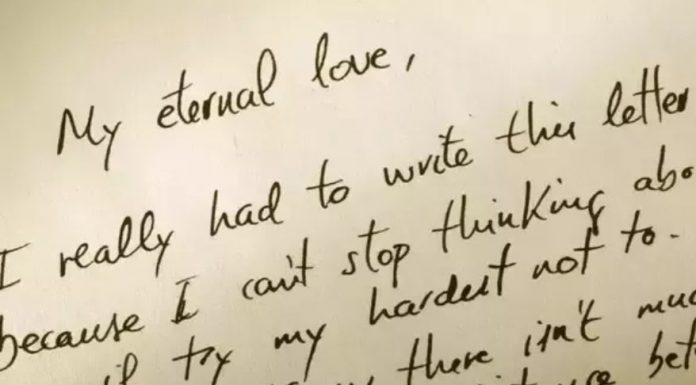 My eternal love,
I really had to write this letter
because I can't stop thinking abo
if try my hardest not to.
there isn't muc
bet